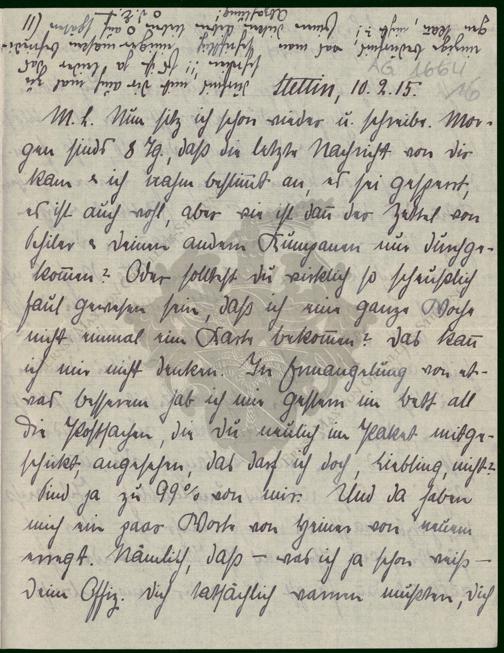 Stettin, 10. 2. 15.
M. L. Nun sitz ich schon wieder u. schreibe. Mor-
gen sinds 8 Tg., daß die letzte Nachricht von dir
kam & ich nahm bestimmt an, es sei gesperrt,
es ist auch wohl, aber wie ist dann der Zettel von
& deinen andern Kumpanen nur durchge-
kommen? Oder solltest du wirklich so scheußlich
faul gewesen sein, daß ich eine ganze Woche
nicht einmal eine Karte bekomme? Das kann
ich mir nicht denken. In Ermangelung von et-
was besserem hab ich mir gestern im Bett all
die Postsachen, die du neulich im Paket mitge-
schickt angesehen, das darf ich doch, Liebling, nicht?
Sind ja zu 99% von mir. Und da haben
mich ein paar Worte von Heiner von neuem
erregt. Nämlich, daß – was ich ja schon weiß –
deine Offiz. dich tatsächlich warnen mußten, dich